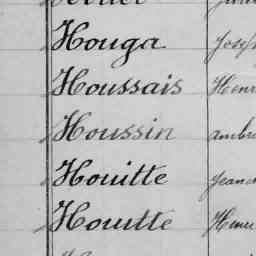 Houga Josep
Houssais Henri
Houssin ambro
Houitte Jean
Houitte Henri